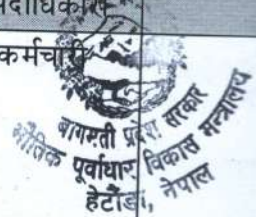 पदाधिकारी
कर्मचारी
बागमती प्रदेश सरकार
भौतिक पूर्वाधार विकास मन्त्रालय
हेटौंडा, नेपाल